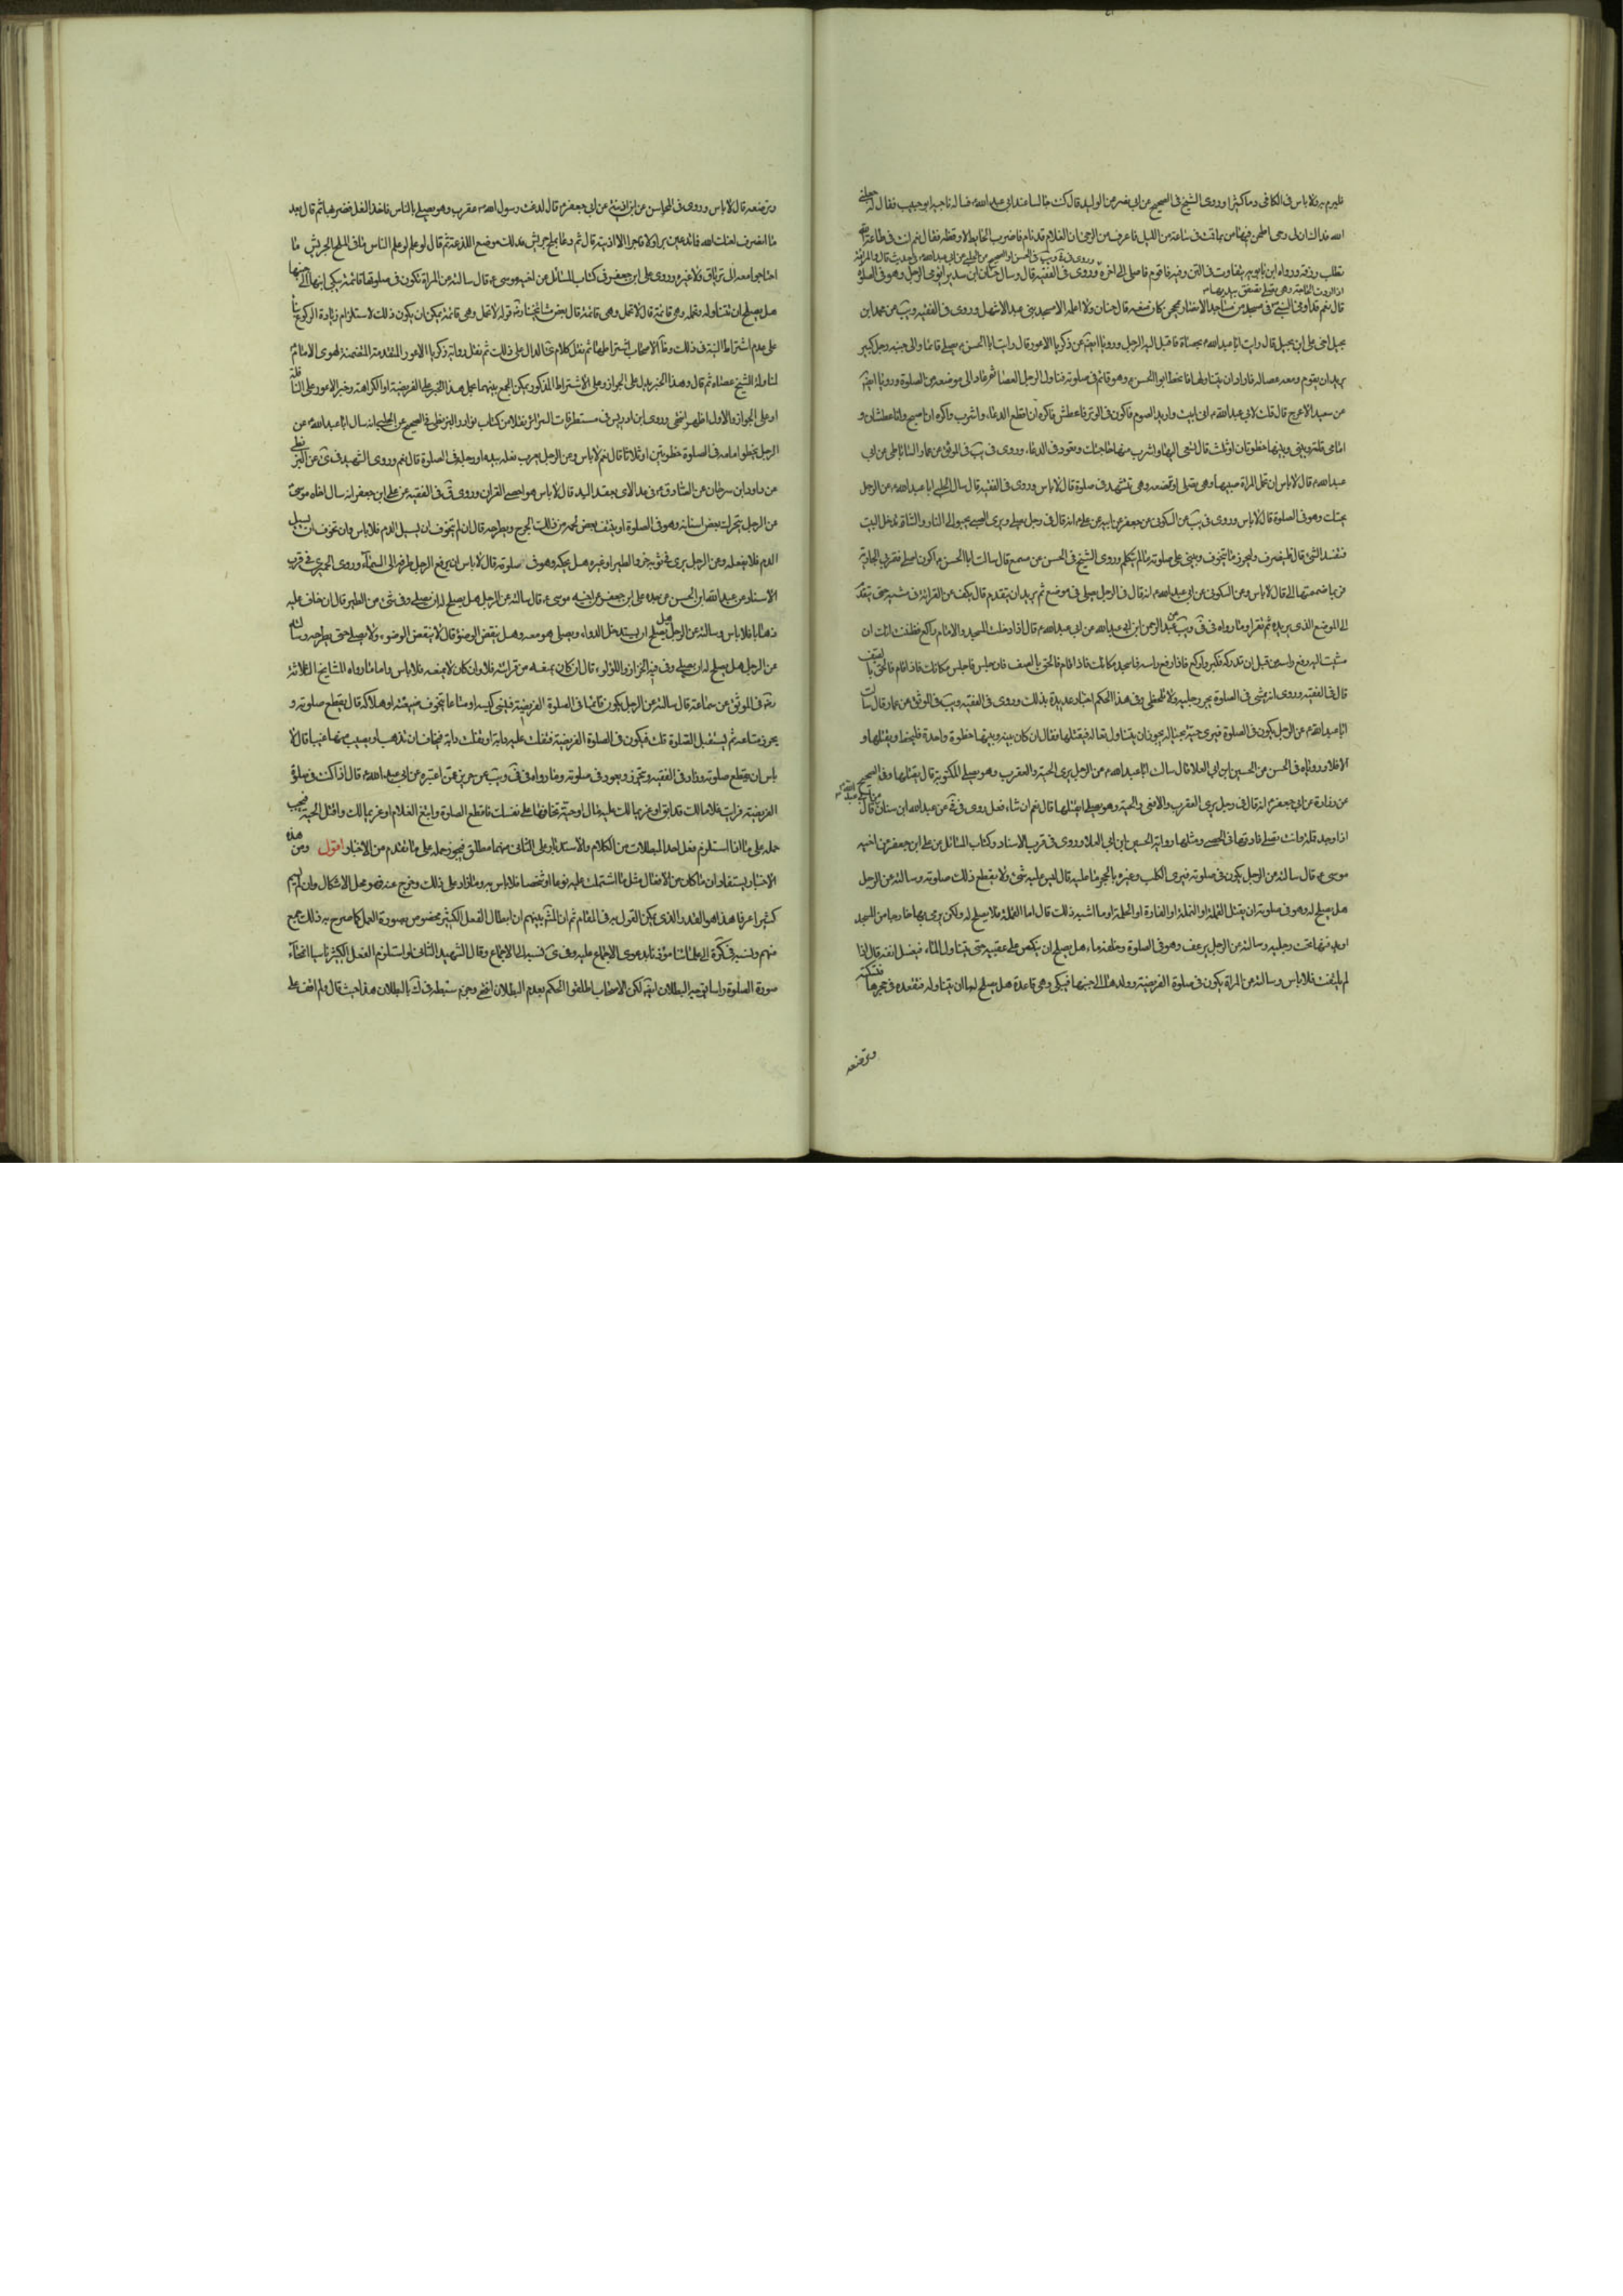 فليرم به فلا باس في الكافي وما كثيرا وروى الشيخ في الصحيح عن ابي نصر عن الوليد قال كنت جالسا عند ابي عبد الله م فساله ناجية ابو حبيب فقال له جعلني
الله فداك ان لي رحى اطحن فيها من ساعة من الليل فاعرف من الرحى ان الغلام قد نام فاضرب الحايط لاوقظه فقال نعم انت في طاعة الله
تطلب رزقه ورواه ابن بابويه بتفاوت في المتن وفيه فاقوم فاصلي الى اخره وروى في الفقيه قال وسال حنان ابن سدير ايومي الرجل وهو في الصلوة
قال نعم قد اومى النبي ص في مسجد من مساجد الانصار بمحجن كان معه قال حنان ولا اعلمه الا مسجد بني عبد الاشهل وروى في الفقيه ويب عن محمد ابن
بجيل اخي علي ابن بجيل قال رايت ابا عبد الله م بحصاة فاقبل اليه الرجل وروى ايضا عن زكريا الاعور قال رايت ابا الحسن م يصلي قائما والى جنبه رجل كبير
يريد ان يقوم ومعه عصا له فاراد ان يتناولها فانحط ابو الحسن م وهو قائم في صلوته فناول الرجل العصا ثم عاد الى موضعه من الصلوة وروى ايضا
عن سعيد الاعرج قال قلت لابي عبد الله م اني ابيت واريد الصوم فاكون في الوتر فاعطش فاكره ان اقطع الدعاء واشرب واكره ان اصبح وانا عطشان و
امامي قلة بيني وبينها خطوتان او ثلث قال تسعى اليها وتشرب منها حاجتك وتعود في الدعاء وروى في يب في الموثق عن عمار الساباطي عن ابي
عبد الله م قال لا باس ان تحمل المراة صبيها وهي تصلي او ترضعه وهي تتشهد في صلوة قال لا باس وروى في الفقيه قال سال الحلبي ابا عبد الله م عن الرجل
يحتك وهو في الصلوة قال لا باس وروى في يب عن السكوني عن جعفر عن ابيه عن علي م انه قال في رجل يصلي ويرى الصبي يحبو الى النار والشاة تدخل البيت
فتفسد الشئ قال فلينصرف وليحرز ما يتخوف ويبني على صلوته ما لم يتكلم وروى الشيخ في الحسن عن مسمع قال سالت ابا الحسن م اكون اصلي فتمر بي الجارية
فربما ضممتها الي قال لا باس وعن السكوني عن ابي عبد الله م انه قال في الرجل يصلي في موضع ثم يريد ان يتقدم قال يكف عن القرائة في مشيه حتى يتقدم
الى الموضع الذي يريده ثم يقرا وما رواه في في ويب عن عبد الرحمن ابن ابي عبد الله عن ابي عبد الله م قال اذا دخلت المسجد والامام راكع فظننت انك ان
مشيت اليه رفع راسه من قبل ان تدركه فكبر واركع فاذا رفع راسه فاسجد مكانك فاذا قام فالحق بالصف فان جلس فاجلس مكانك فاذا قام فالحق بالصف
قال في الفقيه وروى انه يمشي في الصلوة يجر رجليه ولا يتخطى وفي هذا الحكم اخبار عديدة بذلك وروى في الفقيه ويب في الموثق عن عمار قال سالت
ابا عبد الله م عن الرجل يكون في الصلوة فيرى حية بحياله يجوز ان يتناولها فيقتلها فقال ان كان بينه وبينها خطوة واحدة فليخط ويقتلها و
الا فلا ورويا في الحسن عن الحسين ابن ابي العلا قال سالت ابا عبد الله م عن الرجل يرى الحية والعقرب وهو يصلي المكتوبة قال يقتلهما وفي الصحيح
عن زرارة عن ابي جعفر م انه قال في رجل يرى العقرب والافعى والحية وهو يصلي ايقتلها قال نعم ان شاء فعل روى في في عن عبد الله ابن سنان قال
اذا وجد قملة وانت تصلي فادفنها في الحصى ومثلها رواية الحسين ابن ابي العلا وروى في قرب الاسناد وكتاب المسائل عن علي ابن جعفر عن اخيه
موسى م قال سالته عن الرجل يكون في صلوته فيرى الكلب وغيره بالحجر ما عليه قال ليس عليه شئ ولا يقطع ذلك صلوته وسالته عن الرجل
هل يصلح له وهو في صلوته ان يقتل القملة او النملة او الفارة او الحلمة او ما اشبه ذلك قال اما القملة فلا يصلح له ولكن يرمي بها خارجا من المسجد
او يدفنها تحت رجليه وسالته عن الرجل يرعف وهو في الصلوة وخلفه ماء هل يصلح ان ينكص على عقبيه حتى يتناول الماء فيغسل انفه قال اذا
لم يلتفت فلا باس وسالته عن المراة يكون في صلوة الفريضة وولدها الى جنبها فيبكي وهي قاعدة هل يصلح لها ان يتناوله فتقعده في حجرها فتسكته
وترضعه
وترضعه قال لا باس وروى في المحاسن عن ابن اذينة عن ابي جعفر م قال لدغت رسول الله ص عقرب وهو يصلي بالناس فاخذ النعل فضربها ثم قال بعد
ما انصرف لعنك الله فما تدعين برا ولا فاجرا الا اذيته قال ثم دعا بملح جريش فدلك موضع اللدغة ثم قال لو علم الناس ما في الملح الجريش ما
احتاجوا معه الى ترياق ولا غيره وروى علي ابن جعفر في كتاب المسائل عن اخيه موسى م قال سالته عن المراة تكون في صلوتها قائمة يبكي ابنها الى جنبها
هل يصلح ان تتناوله وتحمله وهي قائمة قال لا تحمل وهي قائمة قال بعض مشايخنا قوله لا تحمل وهي قائمة يمكن ان يكون ذلك لاستلزام زيادة الركوع بناء
على عدم اشتراط النية في ذلك وظاهر الاصحاب اشتراطها ثم نقل كلام الدال على ذلك ثم نقل رواية زكريا الاعور المتقدمة المتضمنة لهوى الامام م
لمناولة الشيخ عصاه ثم قال وهذا الخبر يدل على الجواز وعلى الاشتراط المذكور يمكن الجمع بينهما بحمل هذا الخبر على الفريضة او الكراهة وخبر الاعور على النافلة
او على الجواز والاول اظهر انتهى وروى ابن ادريس في مستطرفات السرائر نقلا من كتاب نوادر البزنطي في الصحيح عن الحلبي انه سال ابا عبد الله م عن
الرجل يخطو امامه في الصلوة خطوتين او ثلاثا قال نعم لا باس وعن الرجل يقرب نعله بيده او رجله في الصلوة قال نعم وروى الشهيد في عن البزنطي
عن داود ابن سرحان عن الصادق م في عد الاي بعقد اليد قال لا باس هو احصى للقران وروى في الفقيه عن علي ابن جعفر انه سال اخاه موسى م
عن الرجل يتحرك بعض اسنانه وهو في الصلوة او ينتف بعض لحمه من ذلك الجرح ويطرحه قال ان لم يتخوف ان يسيل الدم فلا باس وان تخوف ان يسيل
الدم فلا يفعله وعن الرجل يرى في ثوبه خرء الطير او غيره هل يحكه وهو في صلوته قال لا باس ان يرفع الرجل طرفه الى السماء وروى الحميري في قرب
الاسناد عن عبد الله ابن الحسن عن جده علي ابن جعفر عن اخيه موسى م قال سالته عن الرجل هل يصلح له ان يصلي وفي شئ من الطير قال ان خاف عليه
ذهابا فلا باس وسالته عن الرجل هل يصلح ان يستدخل الدواء ويصلي وهو معه وهل ينقض الوضوء قال لا ينقض الوضوء ولا يصلي حتى يطرحه وسالته
عن الرجل هل يصلح له ان يصلي وفي فيه الخرز واللؤلؤ قال ان كان يمنعه من قرائته فلا وان كان لا يمنعه فلا باس واما ما رواه المشايخ الثلاثة
في الموثق عن سماعة قال سالته عن الرجل يكون قائما في الصلوة الفريضة فينسى كيسه او متاعا يتخوف ضيعته او هلاكه قال يقطع صلوته و
يحرز متاعه ثم يستقبل الصلوة قلت فيكون في الصلوة الفريضة فتفلت عليه دابة او تفلت دابته فيخاف ان تذهب او يصيب منها عنتا قال لا
باس ان يقطع صلوته وزاد في الفقيه ويتحرز ويعود في صلوته وما رواه في في ويب عن حريز عمن اخبره عن ابي عبد الله م قال اذا كنت في صلوة
الفريضة فرايت غلاما لك قد ابق او غريما لك عليه مال او حية تخافها على نفسك فاقطع الصلوة واتبع الغلام او غريما لك واقتل الحية فيجب
حمله على ما اذا استلزم فعل احد المبطلات من الكلام والاستدبار وعلى الثاني منهما مطلق فيجوز حمله على ما تقدم من الاخبار اقول ومن هذه
الاخبار يستفاد ان ما كان من الافعال مثل ما اشتملت عليه نوعا او شخصا فلا باس به وما زاد على ذلك وخرج عنه فهو محل الاشكال وان لم يسم
كثيرا عرفا هذا هو القدر الذي يمكن القول به في المقام ثم ان المش بينهم ان ابطال الفعل الكثير مخصوص بصورة العمد كما صرح به ذلك جمع
منهم ونسبه في كرة الى علمائنا مؤذنا بدعوى الاجماع عليه وفي ى نسبه الى الاجماع وقال الشهيد الثاني لو استلزم الفعل الكثير ناسيا انمحاء
صورة الصلوة راسا توجه البطلان ايضا لكن الاصحاب اطلقوا الحكم بعدم البطلان انتهى وجزم سبطه في ك بالبطلان هنا حيث قال ولم اقف على